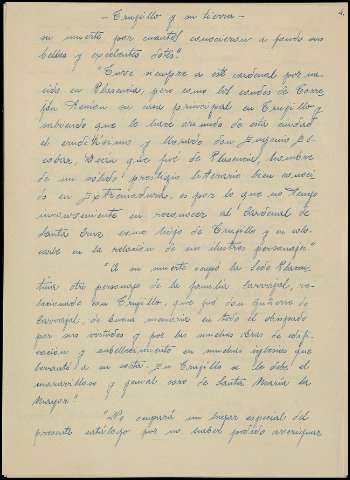 4.
- Trujillo y su tierra -
su muerte por cuantos conocieron a fondo sus
bellas y excelentes dotes."
"Corre siempre a este cardenal por na-
cido en Plasencia, pero como los condes de Torre-
jón tenían su casa principal en Trujillo y
sabiendo que le hace oriundo de esta ciudad
el eruditísimo y llorado don Eugenio Es-
cobar, Deán que fué de Plasencia, hombre
de un sólido prestigio literario bien conoci-
do en Extremadura, es por lo que no tengo
inconveniente en reconocer al Cardenal de
Santa Cruz como hijo de Trujillo y en colo-
carle en la relación de sus ilustres personajes."
"A su muerte ocupó la Sede Placen-
tina otro personaje de la familia Carvajal, re-
lacionado con Trujillo, que fué don Gutierre de
Carvajal, de buena memoria en todo el obispado
por sus virtudes y por las muchas obras de edifi-
cación y embellecimiento en muchas iglesias que
levantó a su costa. En Trujillo se le debe el
maravilloso y genial coro de Santa María la
Mayor."
"No ocupará un lugar especial del
presente catálogo por no haber podido averiguar